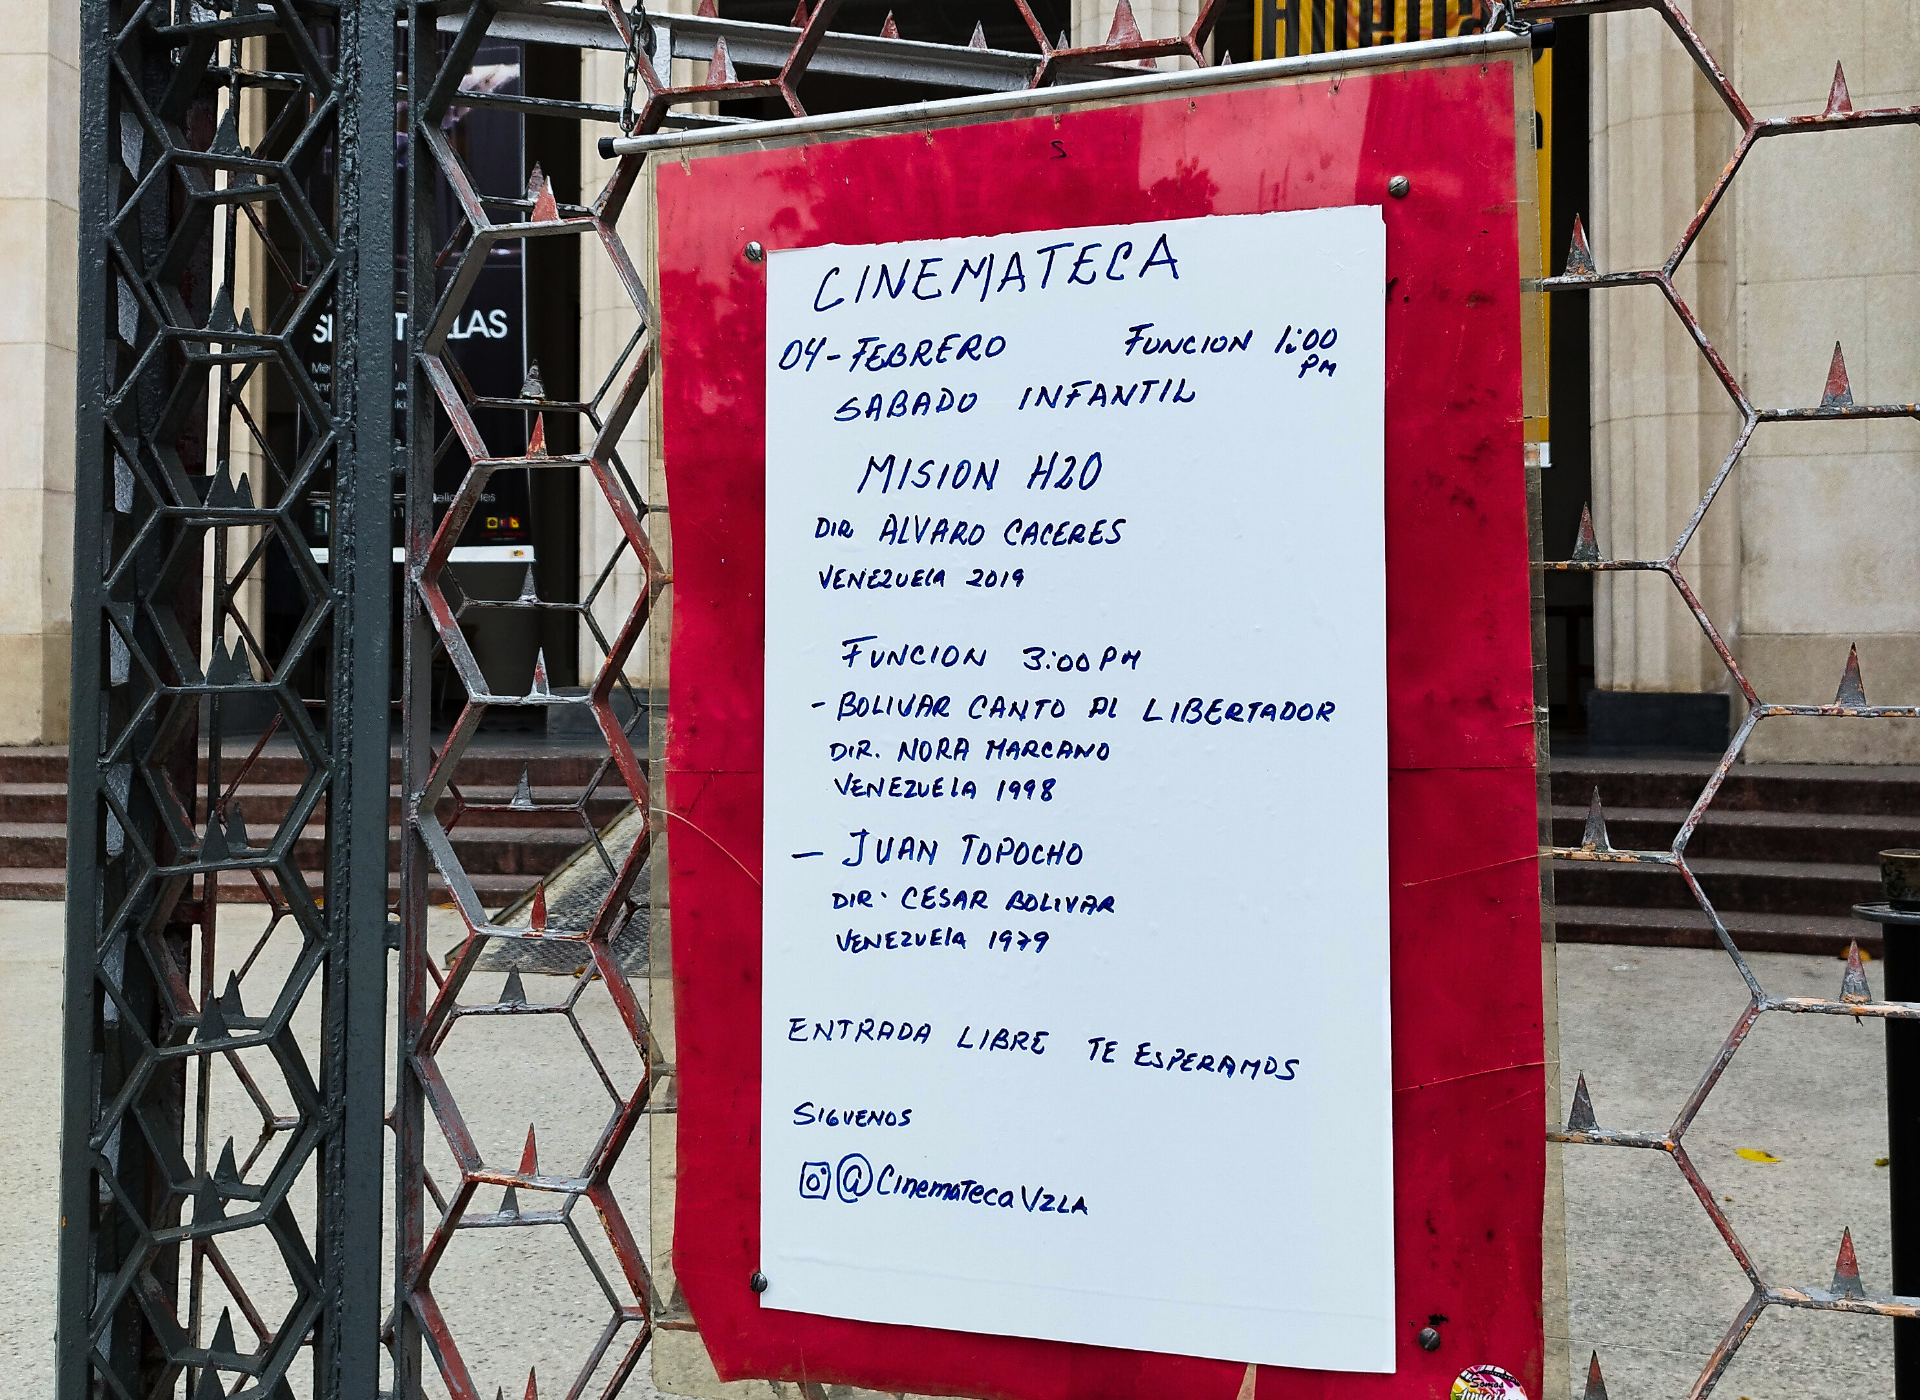 S
CINEMATECA
04-FEBRERO FUNCION 1:00 PM
SABADO INFANTIL
MISION H2O
DIR ALVARO CACERES
VENEZUELA 2019
FUNCION 3:00 PM
- BOLIVAR CANTO AL LIBERTADOR
DIR. NORA MARCANO
VENEZUELA 1998
- JUAN TOPOCHO
DIR. CESAR BOLIVAR
VENEZUELA 1979
ENTRADA LIBRE TE ESPERAMOS
SIGUENOS
@CinemaTecaVZLA
Somos